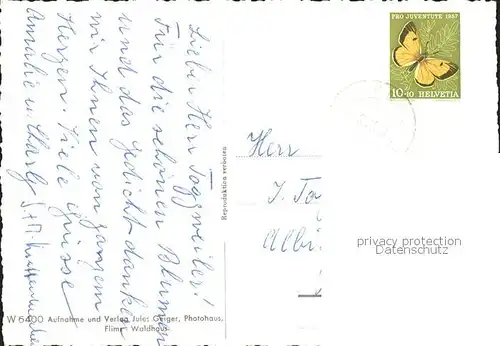 Lieber Herr Toggweiler!
Für die schönen Blumen
und das Gedicht danken
wir Ihnen von ganzem
Herzen. Viele Grüsse
Amalie u. Charly
Reproduktion verboten
PRO JUVENTUTE 1957
10+10 HELVETIA
Herr
J. To
Albi
privacy protection
Datenschutz
W 6400 Aufnahme und Verlag Jules Geiger, Photohaus,
Flims Waldhaus.